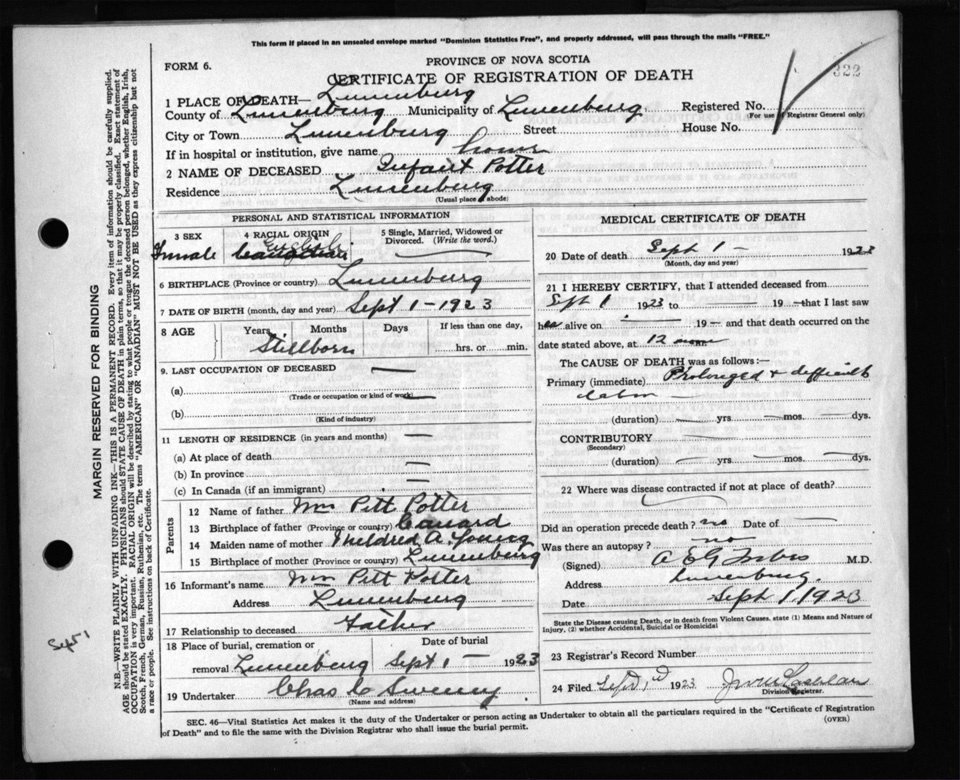 This form if placed in an unsealed envelope marked "Dominion Statistics Free", and properly addressed, will pass through the mails "FREE."
FORM 6.
PROVINCE OF NOVA SCOTIA
CERTIFICATE OF REGISTRATION OF DEATH
322
1 PLACE OF DEATH— Lunenburg
County of Lunenburg Municipality of Lunenburg Registered No.
(For use of Registrar General only)
City or Town Lunenburg Street House No.
If in hospital or institution, give name home
2 NAME OF DECEASED Infant Potter
Residence Lunenburg
(Usual place of abode)
PERSONAL AND STATISTICAL INFORMATION
3 SEX 4 RACIAL ORIGIN 5 Single, Married, Widowed or Divorced. (Write the word.)
Female English
6 BIRTHPLACE (Province or country) Lunenburg
7 DATE OF BIRTH (month, day and year) Sept 1 - 1923
8 AGE Years Months Days If less than one day,
Stillborn hrs. or min.
9. LAST OCCUPATION OF DECEASED —
(a) (Trade or occupation or kind of work) —
(b)
(Kind of industry)
11 LENGTH OF RESIDENCE (in years and months) —
(a) At place of death —
(b) In province —
(c) In Canada (if an immigrant) —
Parents
12 Name of father Wm Pitt Potter
13 Birthplace of father (Province or country) Canard
14 Maiden name of mother Mildred A. Young
15 Birthplace of mother (Province or country) Lunenburg
16 Informant's name Wm Pitt Potter
Address Lunenburg
17 Relationship to deceased Father
18 Place of burial, cremation or removal Date of burial
Lunenburg Sept 1 — 1923
19 Undertaker Chas C Sweeny
(Name and address)
MEDICAL CERTIFICATE OF DEATH
20 Date of death Sept 1 - 1923
(Month, day and year)
21 I HEREBY CERTIFY, that I attended deceased from
Sept 1 1923 to — 19 — that I last saw
her alive on — 19 — and that death occurred on the
date stated above, at 12 noon
The CAUSE OF DEATH was as follows:—
Primary (immediate) Prolonged + difficult
labor —
(duration) — yrs — mos. — dys.
CONTRIBUTORY —
(Secondary)
(duration) — yrs — mos. — dys.
22 Where was disease contracted if not at place of death?
Did an operation precede death? no Date of —
Was there an autopsy? no
(Signed) A E G Forbes M.D.
Address Lunenburg.
Date Sept 1, 1923
State the Disease causing Death, or in death from Violent Causes, state (1) Means and Nature of Injury, (2) whether Accidental, Suicidal or Homicidal
23 Registrar's Record Number
24 Filed Sept 1st 1923
Division Registrar.
SEC. 46—Vital Statistics Act makes it the duty of the Undertaker or person acting as Undertaker to obtain all the particulars required in the "Certificate of Registration of Death" and to file the same with the Division Registrar who shall issue the burial permit.
(OVER)
MARGIN RESERVED FOR BINDING
N.B.—WRITE PLAINLY WITH UNFADING INK—THIS IS A PERMANENT RECORD. Every item of information should be carefully supplied.
AGE should be stated EXACTLY. PHYSICIANS should STATE CAUSE OF DEATH in plain terms, so that it may be properly classified. Exact statement of
OCCUPATION is very important. RACIAL ORIGIN will be described by stating to what people or tongue the deceased person belonged, whether English, Irish,
Scotch, French, German, Russian, Ruthenian, etc. The terms "AMERICAN" OR "CANADIAN" MUST NOT BE USED as they express citizenship but not
a race or people. See instructions on back of Certificate.
Sept 1